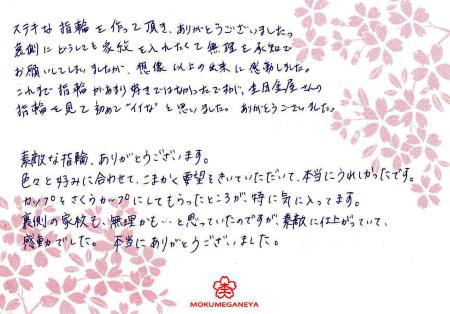 ステキな指輪を作って頂き、ありがとうございました。
裏側にどうしても家紋を入れたくて無理を承知で
お願いしてしまいましたが、想像以上の出来に感動しました。
これまで指輪があまり好きではなかったですが、杢目金屋さんの
指輪を見て初めて"イイな"と思いました。ありがとうございました。
素敵な指輪、ありがとうございます。
色々と好みに合わせて、こまかく要望をきいていただいて、本当にうれしかったです。
カップをさくらカップにしてもらったところが、特に気に入ってます。
裏側の家紋も、無理かも…と思っていたのですが、素敵に仕上がっていて、
感動でした。本当にありがとうございました。
MOKUMEGANEYA